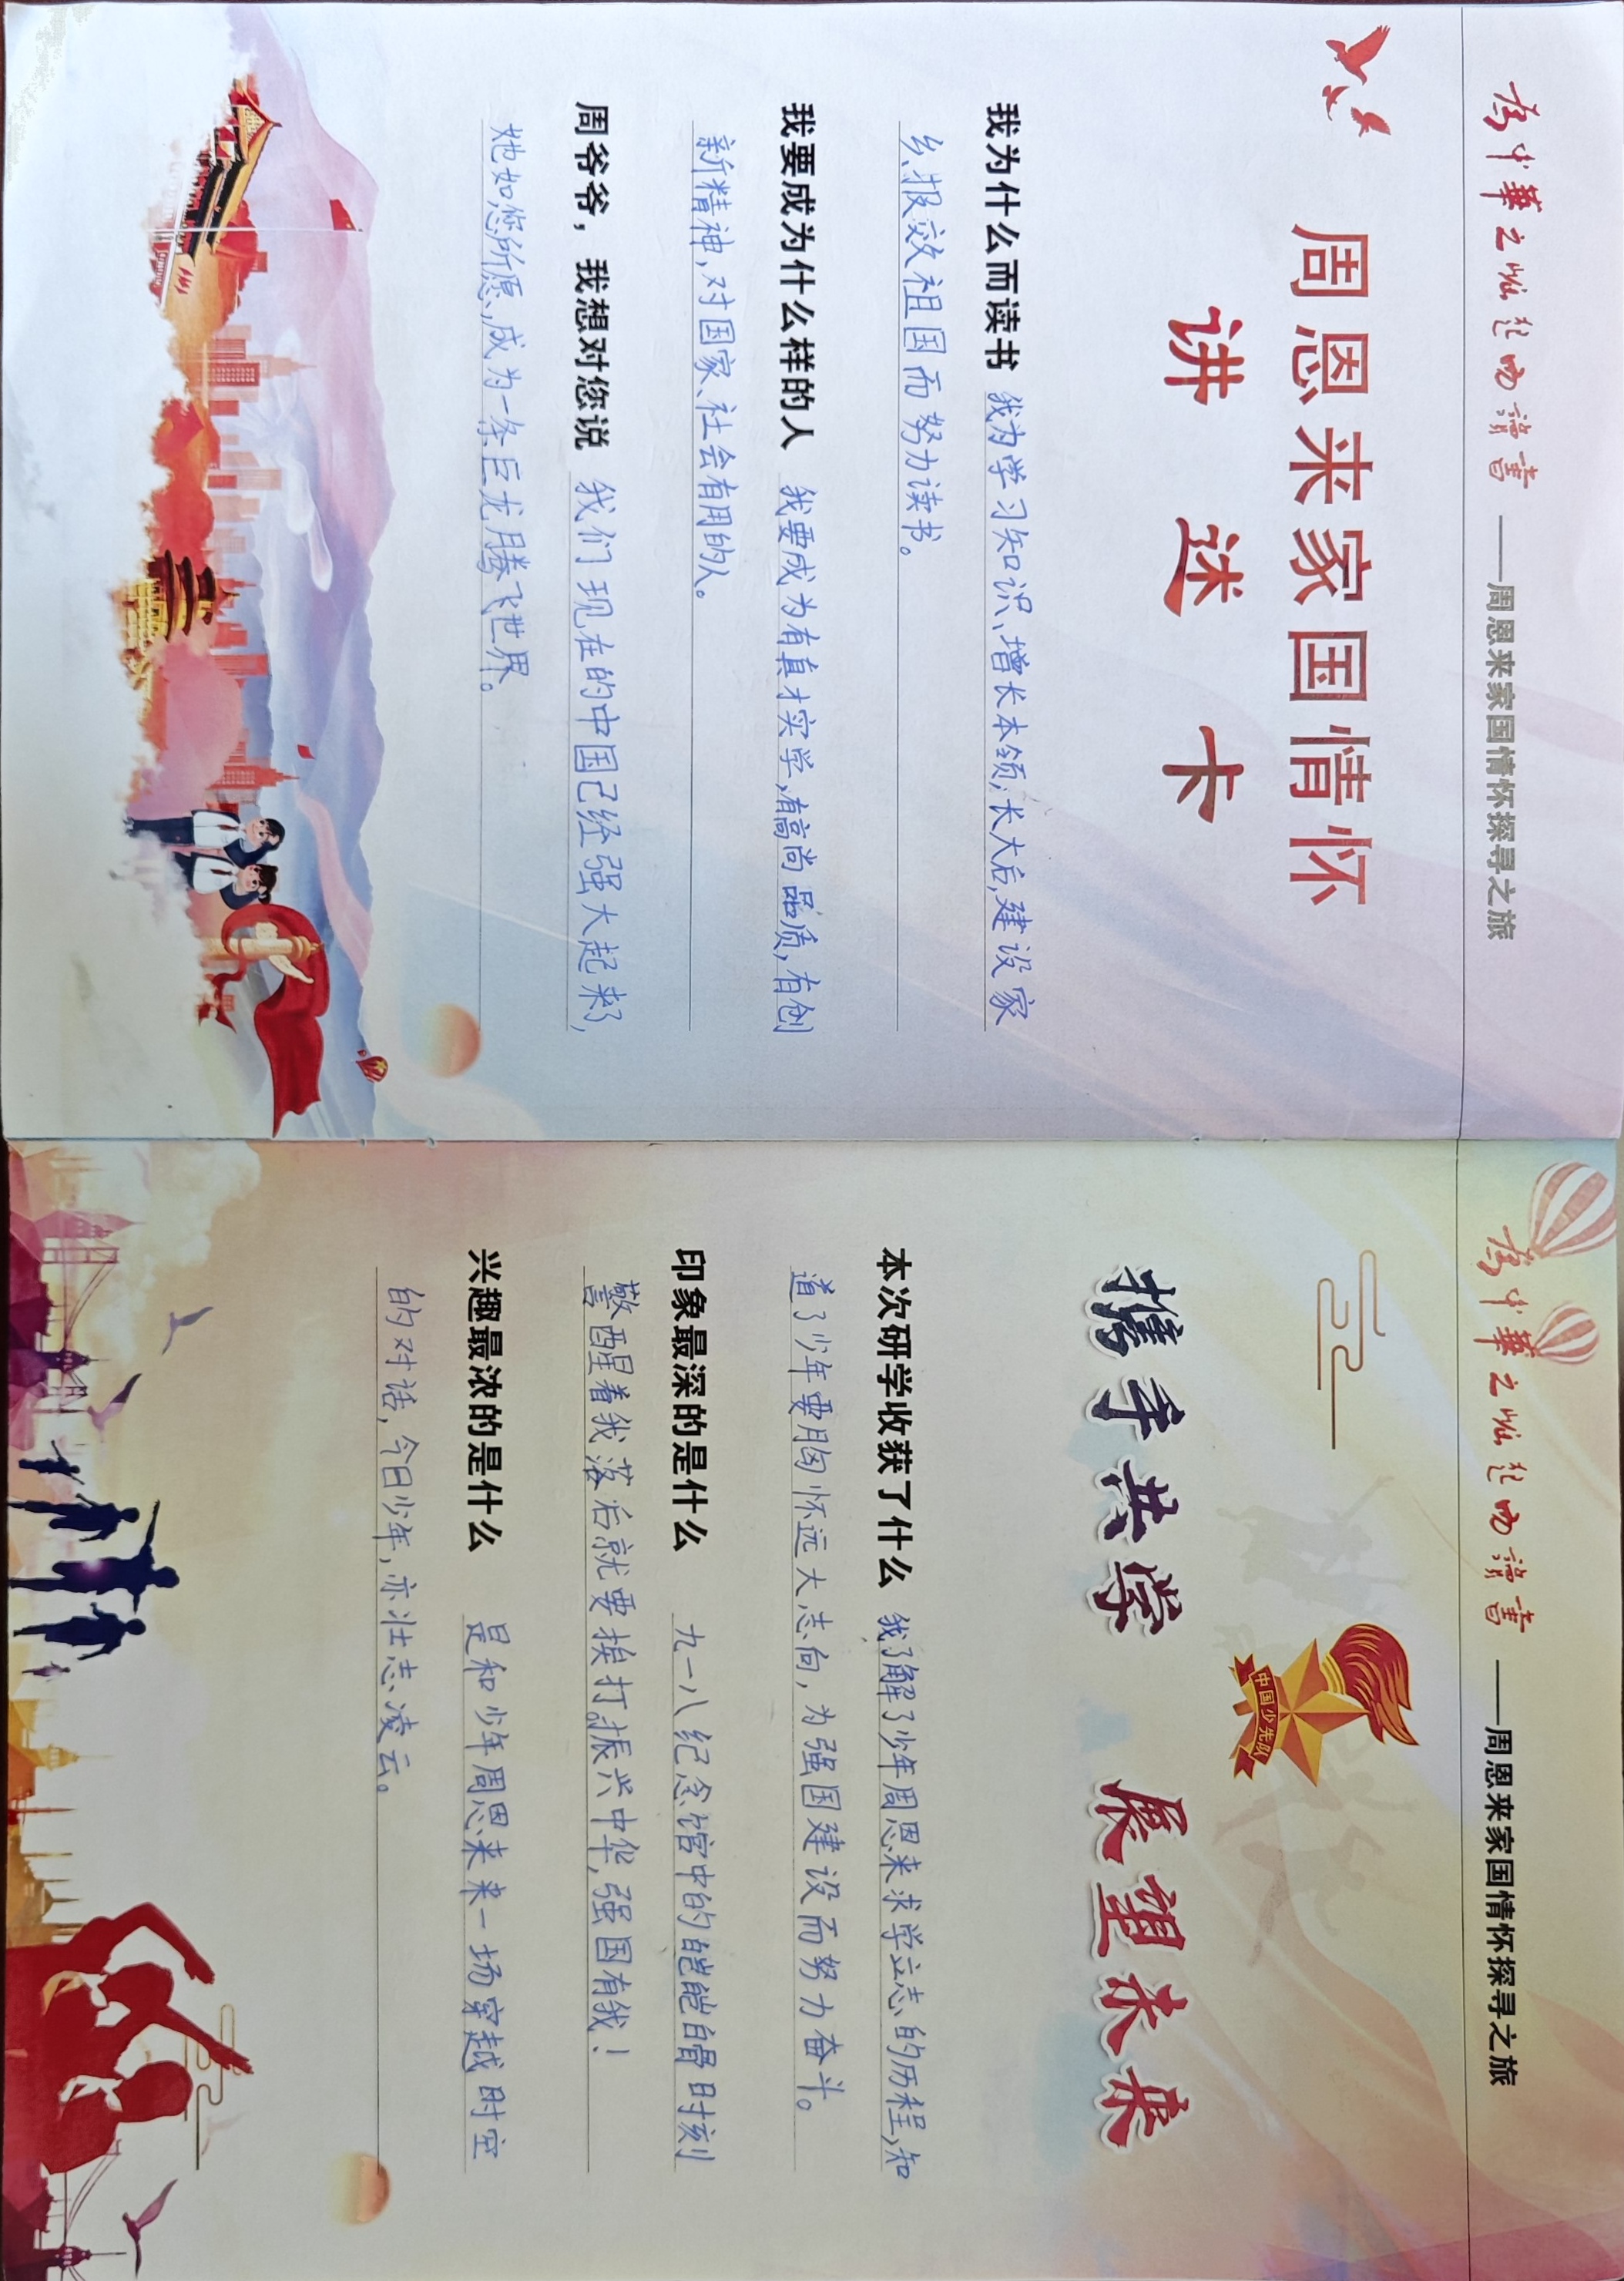 为中華之崛起而讀書 ——周恩来家国情怀探寻之旅
周恩来家国情怀
讲述卡
我为什么而读书 我为学习知识、增长本领，长大后，建设家
乡、报效祖国而努力读书。
我要成为什么样的人 我要成为有真才实学，有高尚品质，有创
新精神，对国家、社会有用的人。
周爷爷，我想对您说 我们现在的中国已经强大起来了，
她如您所愿，成为一条巨龙腾飞世界。
为中華之崛起而讀書 ——周恩来家国情怀探寻之旅
中国少先队
携手共学 展望未来
本次研学收获了什么 我了解了少年周恩来求学立志的历程，知
道了少年要胸怀远大志向，为强国建设而努力奋斗。
印象最深的是什么 九一八纪念馆中的皑皑白骨时刻
警醒着我落后就要挨打，振兴中华，强国有我！
兴趣最浓的是什么 是和少年周恩来来一场穿越时空
的对话，今日少年，亦壮志凌云。